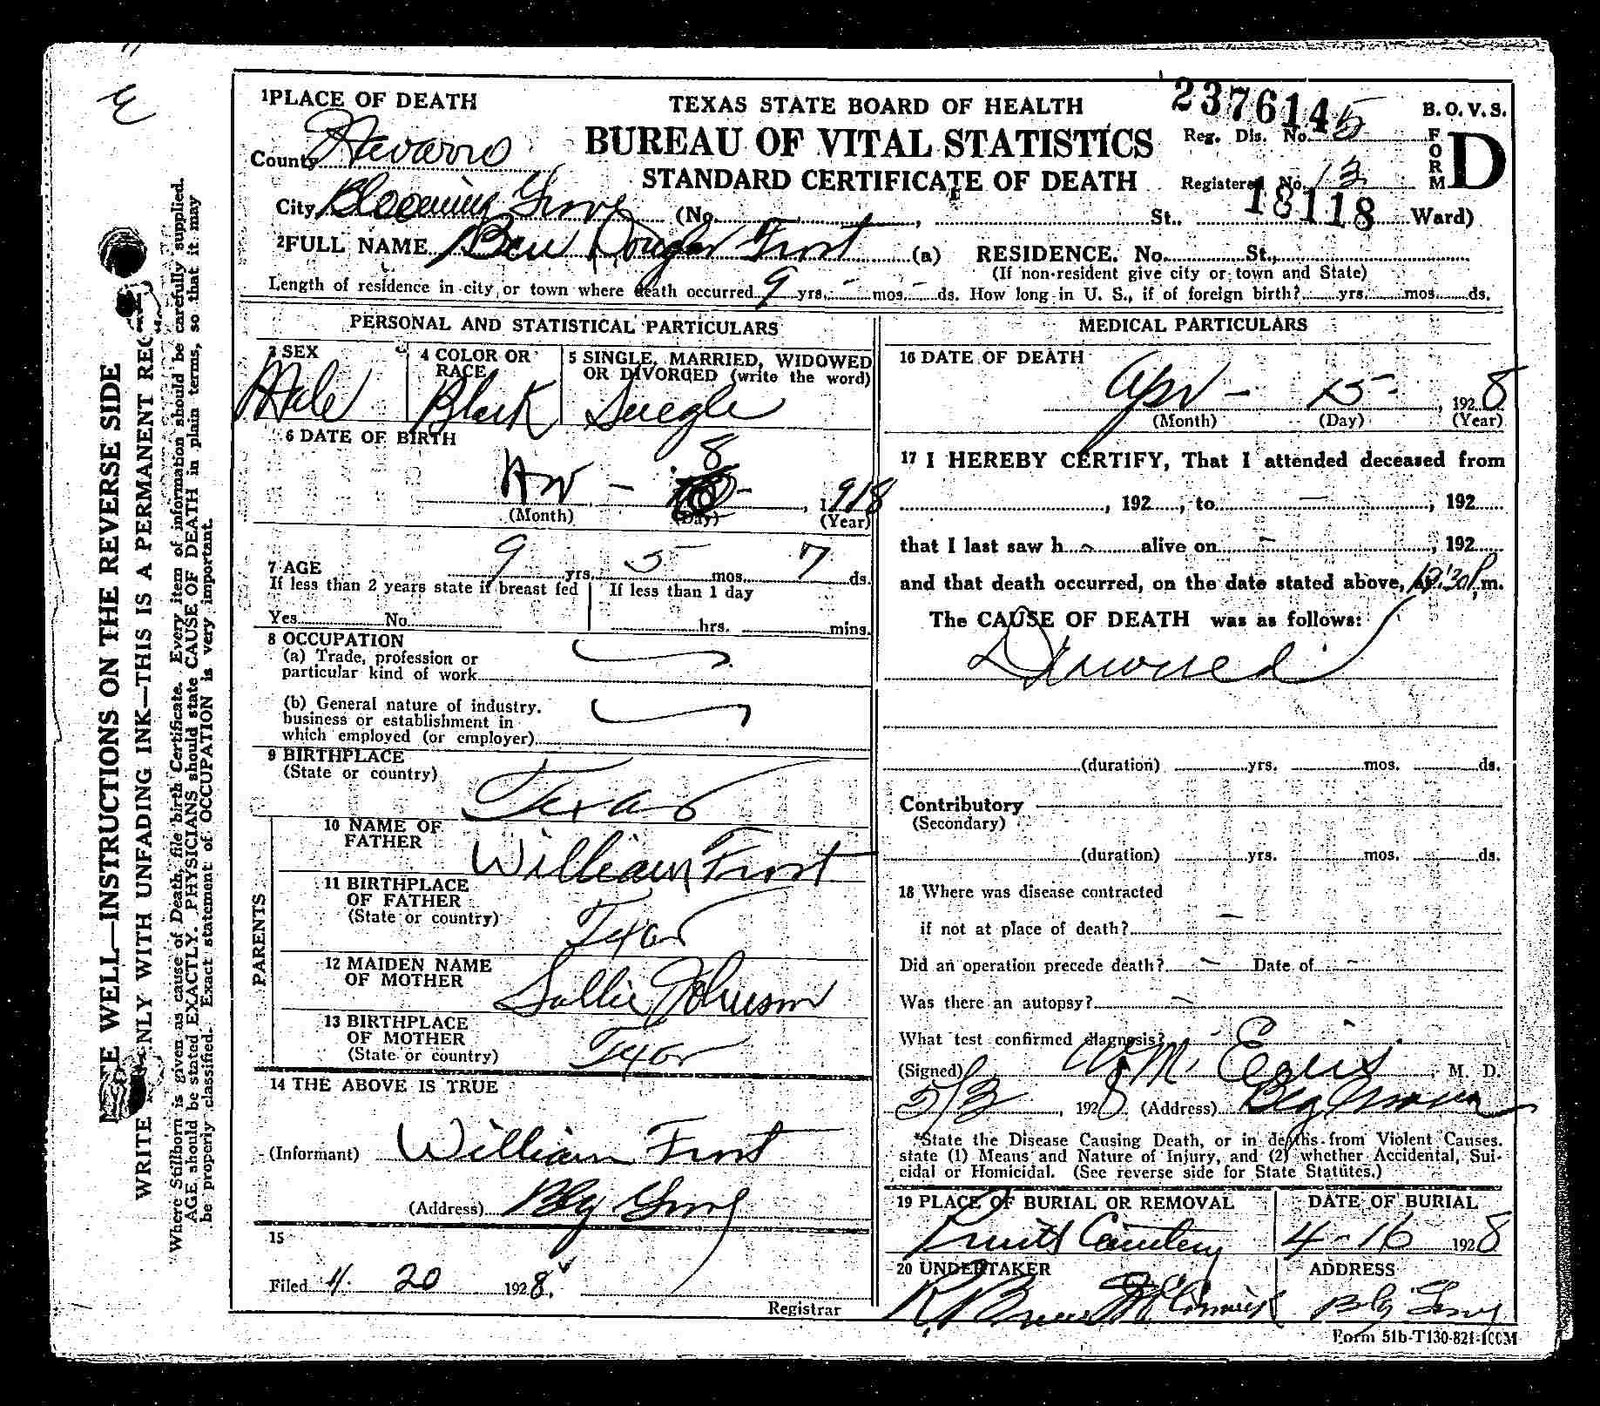 1 PLACE OF DEATH
TEXAS STATE BOARD OF HEALTH
BUREAU OF VITAL STATISTICS
STANDARD CERTIFICATE OF DEATH
237614
Reg. Dis. No. 5
Registered No. 13
18118
B. O. V. S.
FORM D
County Navarro
City Blooming Grove (No. , St., Ward)
2 FULL NAME Ben Douglas Frost (a) RESIDENCE. No. St.,
(If non-resident give city or town and State)
Length of residence in city or town where death occurred 9 yrs. - mos. - ds. How long in U. S., if of foreign birth? yrs. mos. ds.
PERSONAL AND STATISTICAL PARTICULARS
3 SEX
Male
4 COLOR OR RACE
Black
5 SINGLE, MARRIED, WIDOWED
OR DIVORCED (write the word)
Single
6 DATE OF BIRTH
- 8 - , 1918
(Month) (Day) (Year)
7 AGE 9 yrs. 5 mos. 7 ds.
If less than 2 years state if breast fed
Yes No
If less than 1 day
hrs. mins.
8 OCCUPATION
(a) Trade, profession or
particular kind of work
(b) General nature of industry.
business or establishment in
which employed (or employer)
9 BIRTHPLACE
(State or country)
Texas
PARENTS
10 NAME OF
FATHER
William Frost
11 BIRTHPLACE
OF FATHER
(State or country)
Texas
12 MAIDEN NAME
OF MOTHER
Sallie Johnson
13 BIRTHPLACE
OF MOTHER
(State or country)
Texas
14 THE ABOVE IS TRUE
(Informant) William Frost
(Address) Blg Grove
15
Filed 4. 20 1928.
Registrar
MEDICAL PARTICULARS
16 DATE OF DEATH
Apr - 15 - , 1928
(Month) (Day) (Year)
17 I HEREBY CERTIFY, That I attended deceased from
, 192 , to - , 192
that I last saw h alive on - , 192
and that death occurred, on the date stated above, at 12:30 P. m.
The CAUSE OF DEATH was as follows:
Drowned
(duration) yrs. mos. ds.
Contributory
(Secondary)
(duration) yrs. mos. ds.
18 Where was disease contracted
if not at place of death? -
Did an operation precede death? - Date of -
Was there an autopsy? -
What test confirmed diagnosis? -
(Signed) W M. , M. D.
5/3 , 1928 (Address) Blg Grove
*State the Disease Causing Death, or in deaths from Violent Causes.
state (1) Means and Nature of Injury, and (2) whether Accidental, Sui-
cidal or Homicidal. (See reverse side for State Statutes.)
19 PLACE OF BURIAL OR REMOVAL
Pruitt Cemetery
DATE OF BURIAL
4-16 1928
20 UNDERTAKER
McCormick
ADDRESS
Blg Grove
Form 51b-T130-821-100M
WELL—INSTRUCTIONS ON THE REVERSE SIDE
WRITE ONLY WITH UNFADING INK—THIS IS A PERMANENT REC
Where Stillborn is given as cause of Death, file birth Certificate. Every item of information should be carefully supplied.
AGE should be stated EXACTLY. PHYSICIANS should state CAUSE OF DEATH in plain terms, so that it may
be properly classified. Exact statement of OCCUPATION is very important.